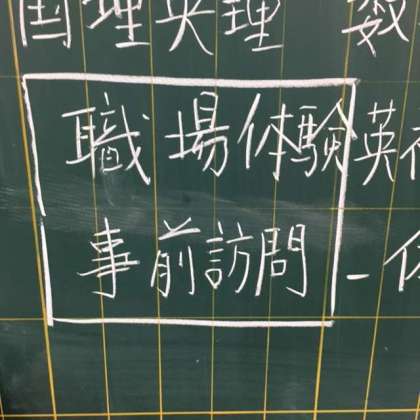 国理英理 数
職場体験 英
事前訪問 -